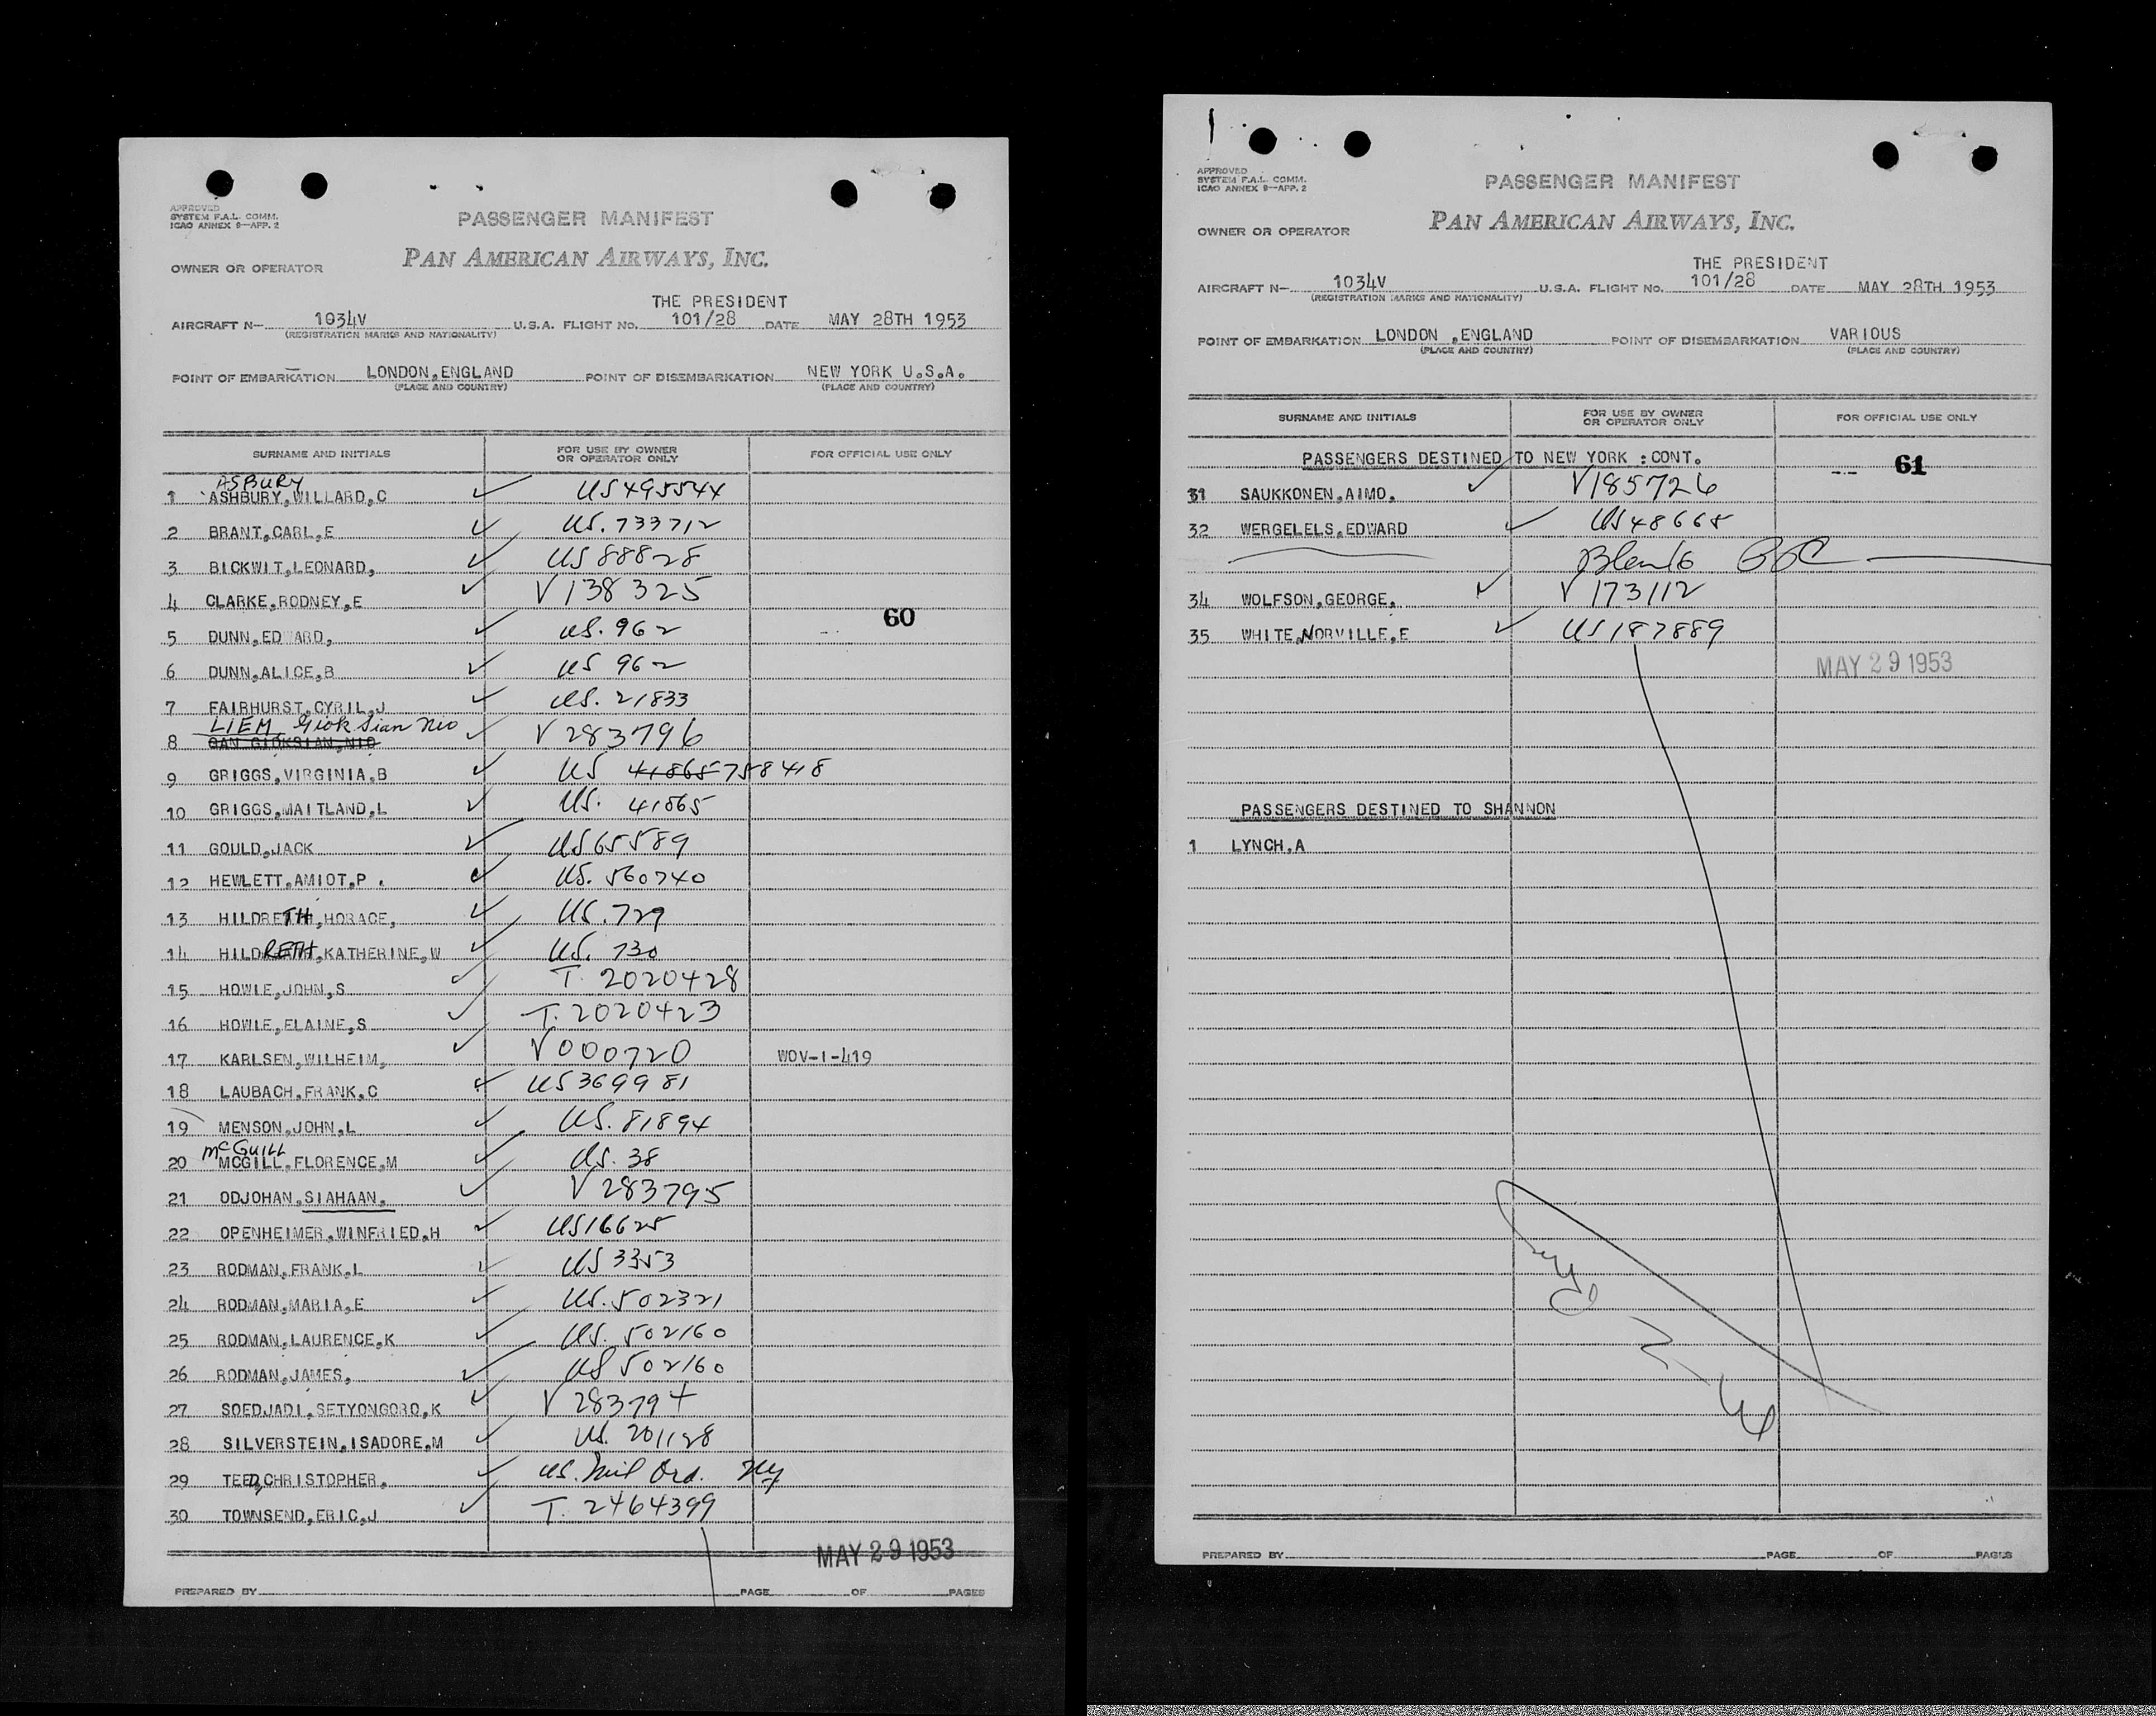 APPROVED
SYSTEM F.A.L. COMM.
ICAO ANNEX 9—APP. 2
PASSENGER MANIFEST
PAN AMERICAN AIRWAYS, INC.
OWNER OR OPERATOR
THE PRESIDENT
AIRCRAFT N— 1034V U.S.A. FLIGHT No. 101/28 DATE MAY 28TH 1953
(REGISTRATION MARKS AND NATIONALITY)
POINT OF EMBARKATION LONDON,ENGLAND POINT OF DISEMBARKATION NEW YORK U.S.A.
(PLACE AND COUNTRY) (PLACE AND COUNTRY)
SURNAME AND INITIALS FOR USE BY OWNER OR OPERATOR ONLY FOR OFFICIAL USE ONLY
ASBURY
1 ASHBURY,WILLARD,C US495544
2 BRANT,CARL,E US.733712
3 BICKWIT,LEONARD, US88828
4 CLARKE,RODNEY,E V138325
60
5 DUNN,EDWARD, US.962
6 DUNN,ALICE,B US 962
7 FAIRHURST,CYRIL,J US.21833
LIEM Giok Sian Nio
8 GAN GIOKSIAN,NIO V283796
9 GRIGGS,VIRGINIA,B US 41865 758418
10 GRIGGS,MAITLAND,L US. 41865
11 GOULD,JACK US65589
12 HEWLETT,AMIOT,P. US.560740
13 HILDRETH,HORACE, US.729
14 HILDRETH,KATHERINE,W US.730
15 HOWIE,JOHN,S T.2020428
16 HOWIE,ELAINE,S T.2020423
17 KARLSEN,WILHEIM, V000720 WOV-1-419
18 LAUBACH,FRANK,C US369981
19 MENSON,JOHN,L US.81894
McGUILL
20 MCGILL,FLORENCE,M US.38
21 ODJOHAN,SIAHAAN, V283795
22 OPENHEIMER,WINFRIED,H US16625
23 RODMAN,FRANK,L US3353
24 RODMAN,MARIA,E US.502321
25 RODMAN,LAURENCE,K US.502160
26 RODMAN,JAMES, US502160
27 SOEDJADI,SETYONGORO,K V283794
28 SILVERSTEIN,ISADORE,M US.201128
29 TEED,CHRISTOPHER, US.Mil Ord.
30 TOWNSEND,ERIC,J T.2464399
MAY 29 1953
PREPARED BY PAGE OF PAGES
APPROVED
SYSTEM F.A.L. COMM.
ICAO ANNEX 9—APP. 2
PASSENGER MANIFEST
PAN AMERICAN AIRWAYS, INC.
OWNER OR OPERATOR
THE PRESIDENT
AIRCRAFT N— 1034V U.S.A. FLIGHT No. 101/28 DATE MAY 28TH 1953
(REGISTRATION MARKS AND NATIONALITY)
POINT OF EMBARKATION LONDON ,ENGLAND POINT OF DISEMBARKATION VARIOUS
(PLACE AND COUNTRY) (PLACE AND COUNTRY)
SURNAME AND INITIALS FOR USE BY OWNER OR OPERATOR ONLY FOR OFFICIAL USE ONLY
PASSENGERS DESTINED TO NEW YORK :CONT. 61
31 SAUKKONEN,AIMO. V185726
32 WERGELELS,EDWARD US48668
Blank
34 WOLFSON,GEORGE, V173112
35 WHITE,NORVILLE,E US187889
MAY 29 1953
PASSENGERS DESTINED TO SHANNON
1 LYNCH,A
PREPARED BY PAGE OF PAGES